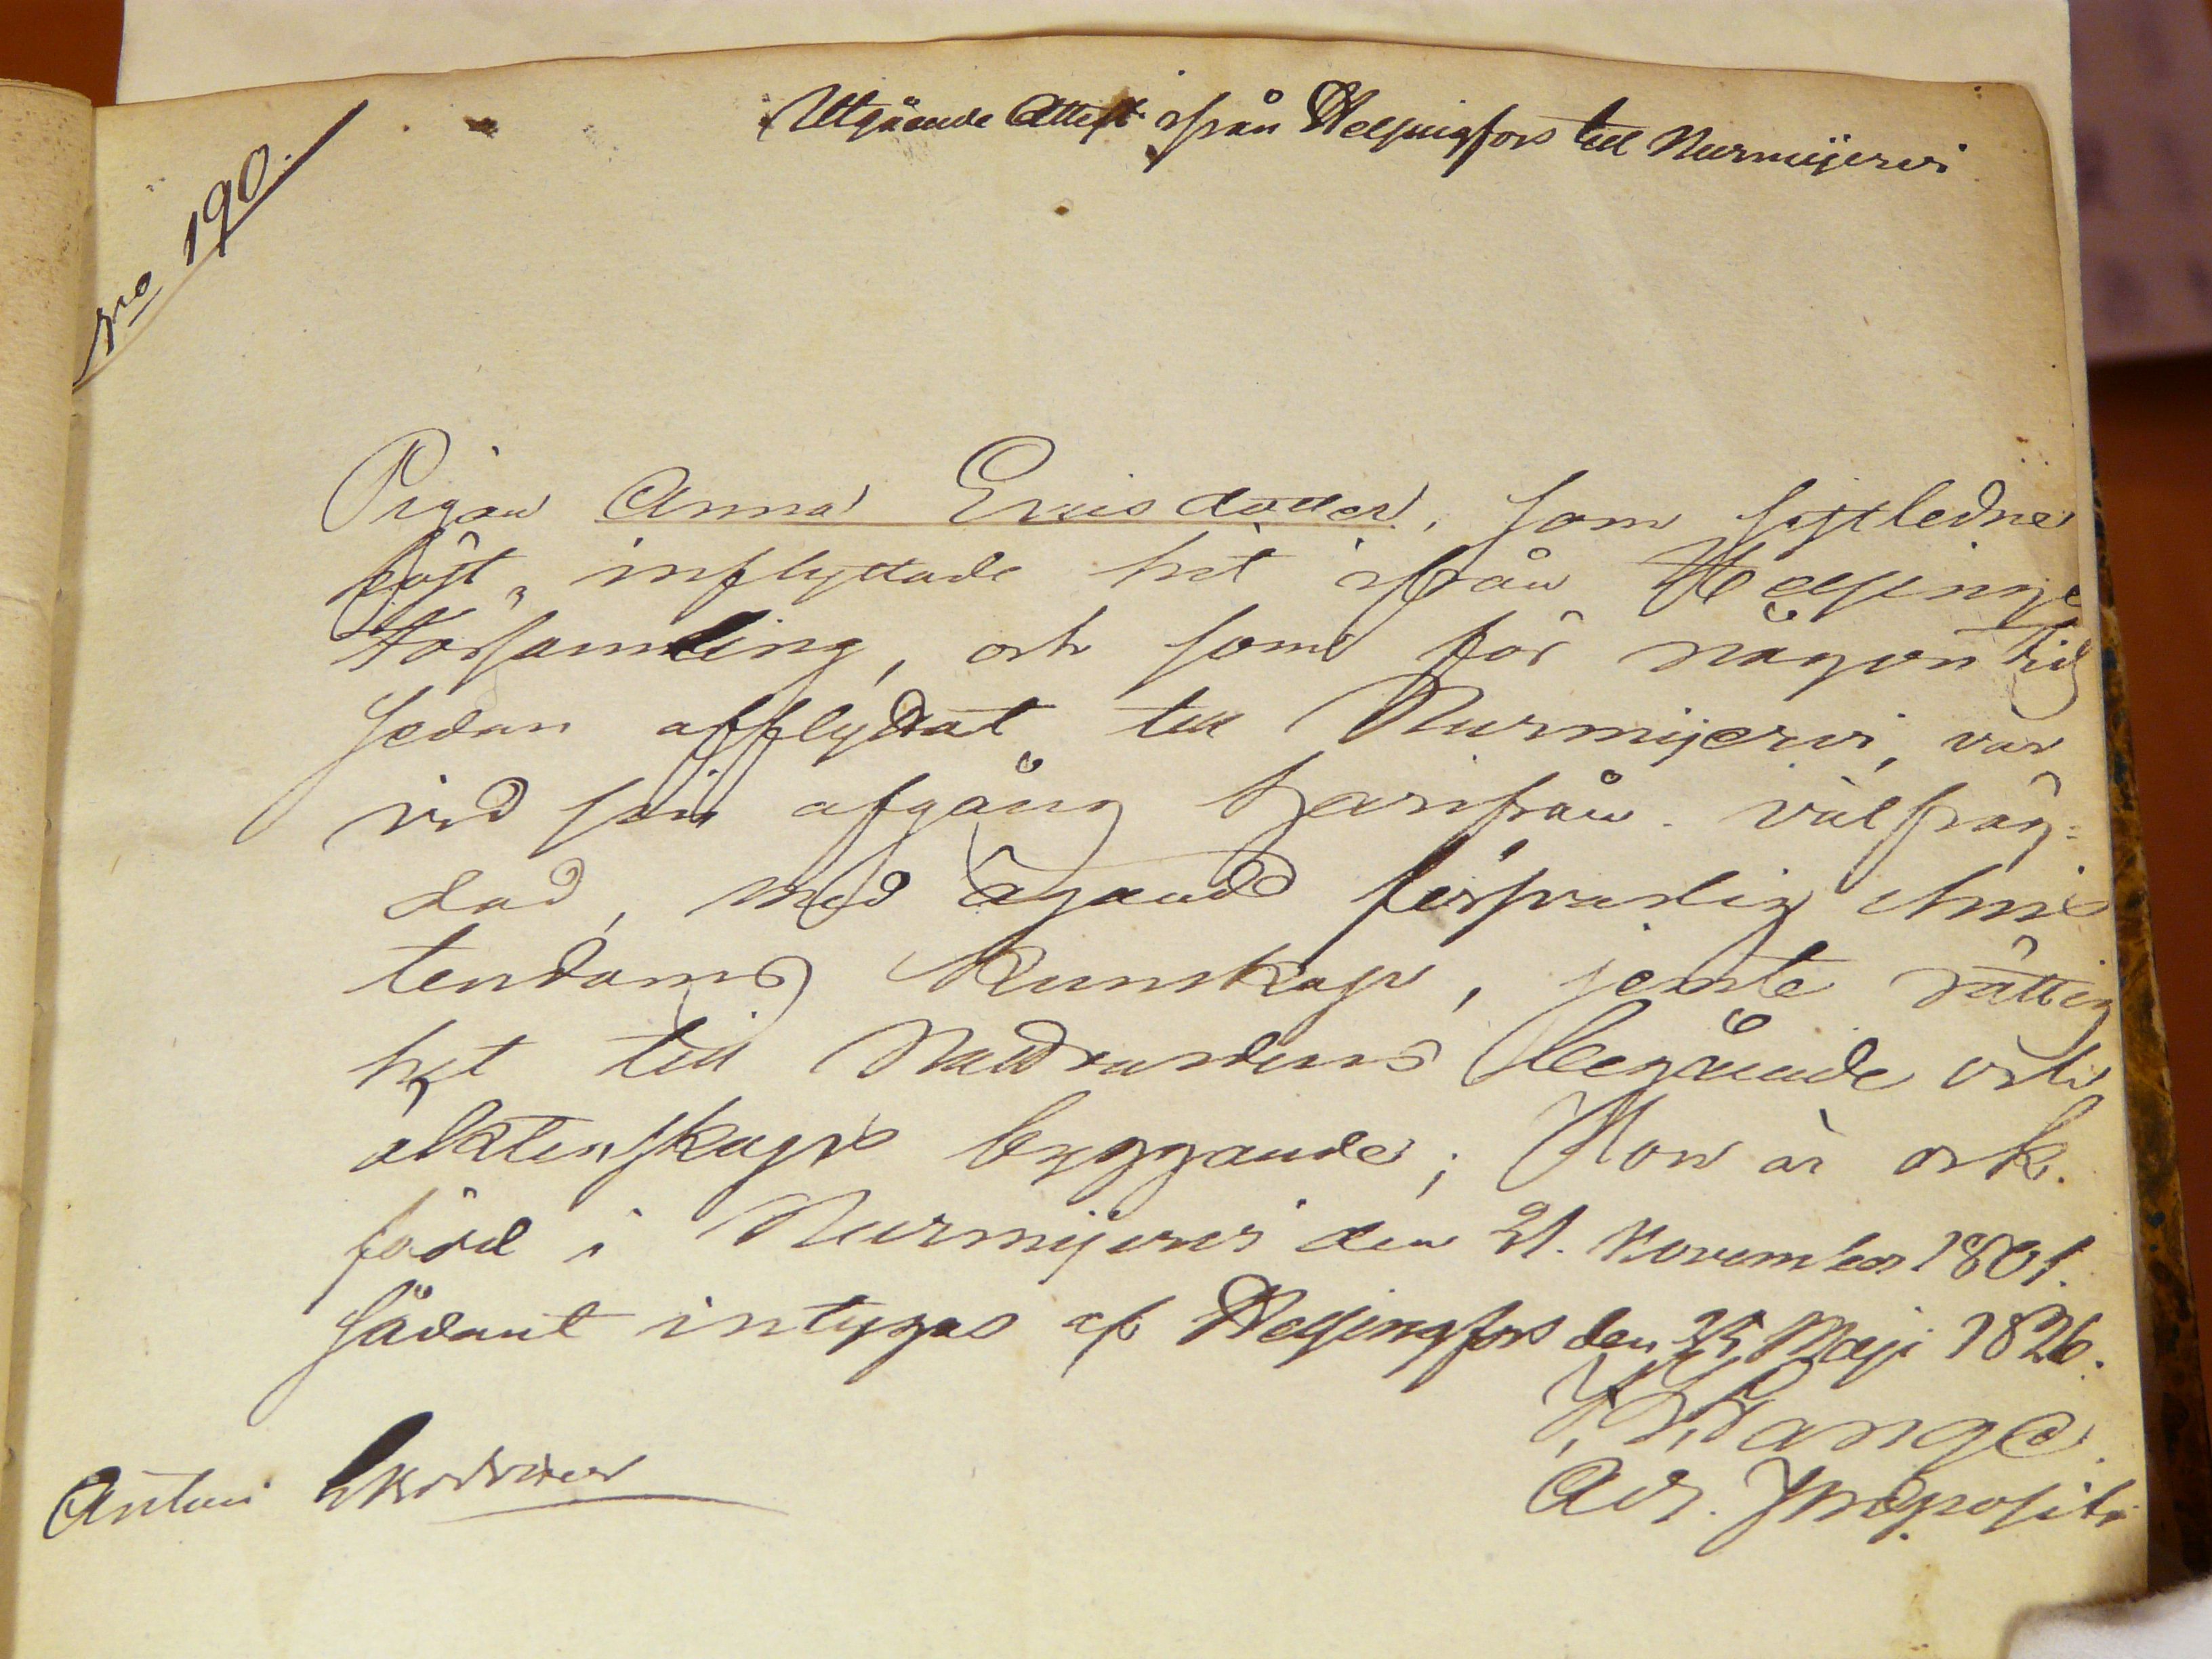 Utgående Attest ifrån Helsingfors till Nurmijervi
No 190.
Pigan Anna Ericsdotter, som sistledne
höst, inflyttade hit ifrån Helsinge
Församling, och som för någon tid
sedan afflyttat till Nurmijervi, var
vid sin afgång härifrån välfräg-
dad, med ägande försvarlig Chris
tendoms Kunskap, jemte rättig
het till Nattvardens begående och
äktenskaps byggande; Hon är ock
född i Nurmijervi den 21. November 1801.
Sådant intygas af Helsingfors den 25 Maji 1826.
Wange
Adj. Præpositi